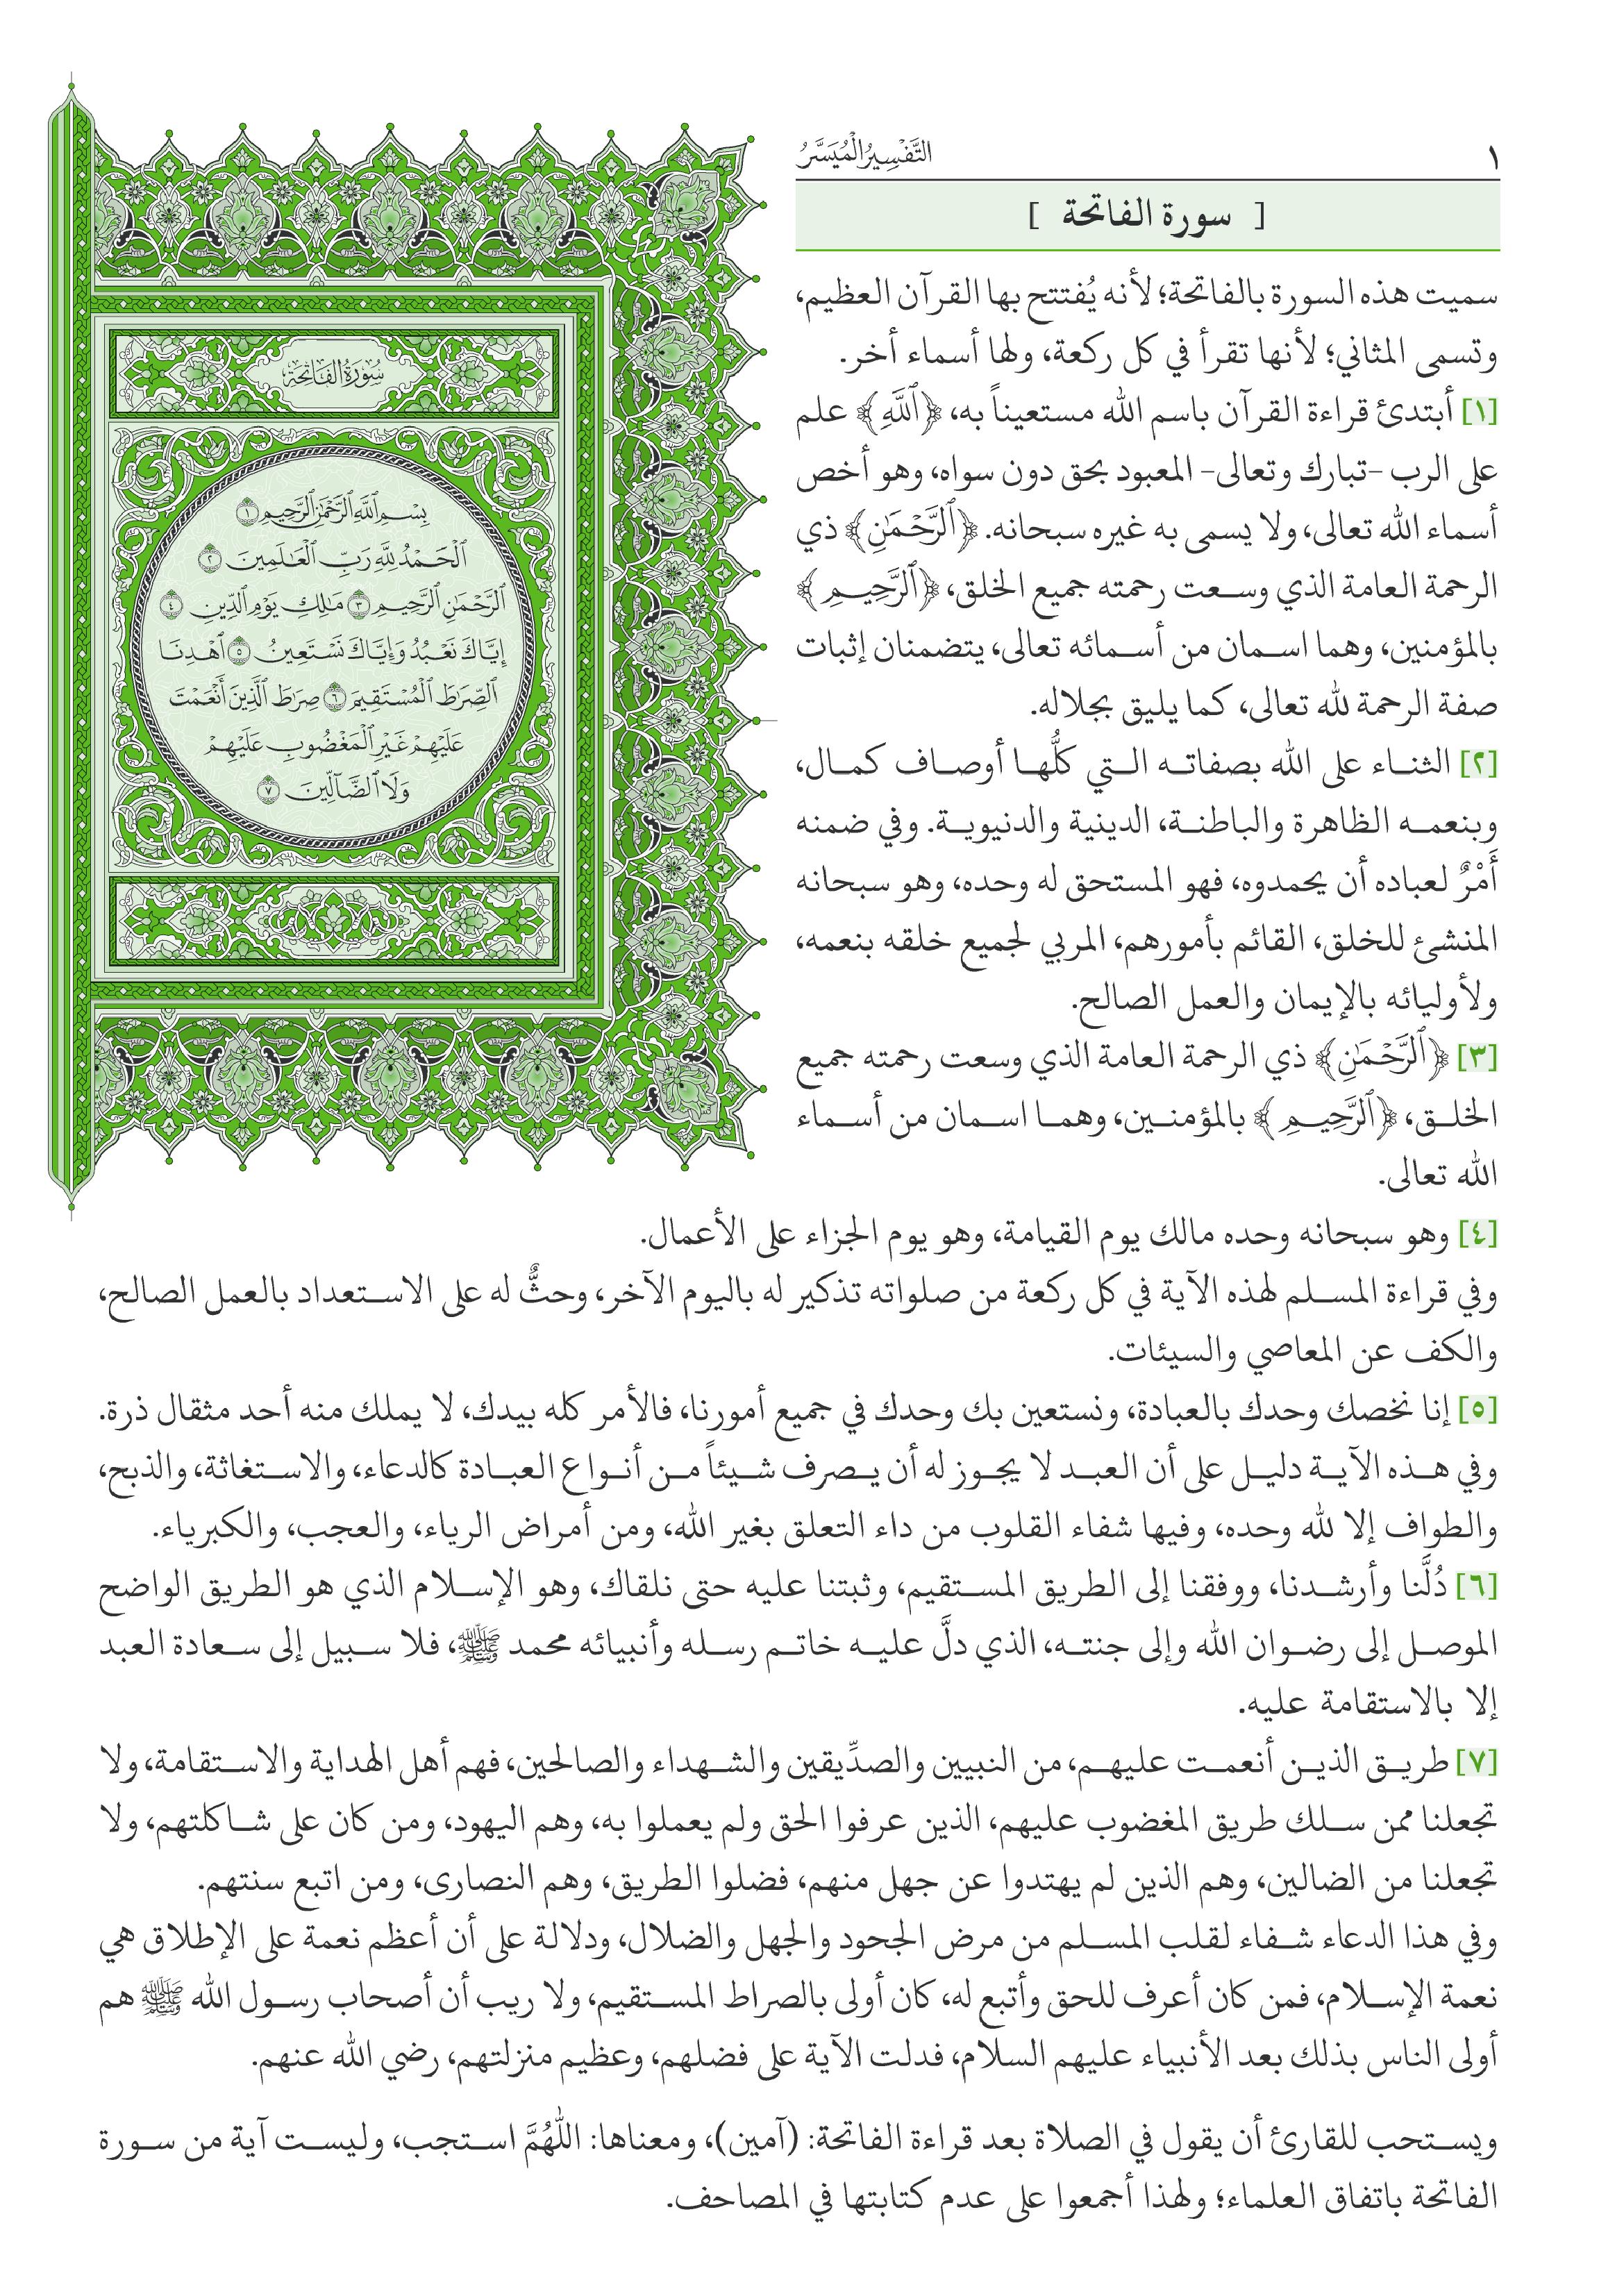 ١
التَّفْسِيرُ الْمُيَسَّرُ
[ سورة الفاتحة ]
سميت هذه السورة بالفاتحة؛ لأنه يُفتتح بها القرآن العظيم،
وتسمى المثاني؛ لأنها تقرأ في كل ركعة، ولها أسماء أخر.
[١] أبتدئ قراءة القرآن باسم الله مستعيناً به، ﴿ٱللَّهِ﴾ علم
على الرب -تبارك وتعالى- المعبود بحق دون سواه، وهو أخص
أسماء الله تعالى، ولا يسمى به غيره سبحانه. ﴿ٱلرَّحْمَٰنِ﴾ ذي
الرحمة العامة الذي وسعت رحمته جميع الخلق، ﴿ٱلرَّحِيمِ﴾
بالمؤمنين، وهما اسمان من أسمائه تعالى، يتضمنان إثبات
صفة الرحمة لله تعالى، كما يليق بجلاله.
[٢] الثناء على الله بصفاته التي كلُّها أوصاف كمال،
وبنعمه الظاهرة والباطنة، الدينية والدنيوية. وفي ضمنه
أَمْرٌ لعباده أن يحمدوه، فهو المستحق له وحده، وهو سبحانه
المنشئ للخلق، القائم بأمورهم، المربي لجميع خلقه بنعمه،
ولأوليائه بالإيمان والعمل الصالح.
[٣] ﴿ٱلرَّحْمَٰنِ﴾ ذي الرحمة العامة الذي وسعت رحمته جميع
الخلق، ﴿ٱلرَّحِيمِ﴾ بالمؤمنين، وهما اسمان من أسماء
الله تعالى.
سُورَةُ الفَاتِحَةِ
بِسْمِ ٱللَّهِ ٱلرَّحْمَٰنِ ٱلرَّحِيمِ ١
ٱلْحَمْدُ لِلَّهِ رَبِّ ٱلْعَٰلَمِينَ ٢
ٱلرَّحْمَٰنِ ٱلرَّحِيمِ ٣ مَٰلِكِ يَوْمِ ٱلدِّينِ ٤
إِيَّاكَ نَعْبُدُ وَإِيَّاكَ نَسْتَعِينُ ٥ ٱهْدِنَا
ٱلصِّرَٰطَ ٱلْمُسْتَقِيمَ ٦ صِرَٰطَ ٱلَّذِينَ أَنْعَمْتَ
عَلَيْهِمْ غَيْرِ ٱلْمَغْضُوبِ عَلَيْهِمْ
وَلَا ٱلضَّآلِّينَ ٧
[٤] وهو سبحانه وحده مالك يوم القيامة، وهو يوم الجزاء على الأعمال.
وفي قراءة المسلم لهذه الآية في كل ركعة من صلواته تذكير له باليوم الآخر، وحثٌّ له على الاستعداد بالعمل الصالح،
والكف عن المعاصي والسيئات.
[٥] إنا نخصك وحدك بالعبادة، ونستعين بك وحدك في جميع أمورنا، فالأمر كله بيدك، لا يملك منه أحد مثقال ذرة.
وفي هذه الآية دليل على أن العبد لا يجوز له أن يصرف شيئاً من أنواع العبادة كالدعاء، والاستغاثة، والذبح،
والطواف إلا لله وحده، وفيها شفاء القلوب من داء التعلق بغير الله، ومن أمراض الرياء، والعجب، والكبرياء.
[٦] دُلَّنا وأرشدنا، ووفقنا إلى الطريق المستقيم، وثبتنا عليه حتى نلقاك، وهو الإسلام الذي هو الطريق الواضح
الموصل إلى رضوان الله وإلى جنته، الذي دلَّ عليه خاتم رسله وأنبيائه محمد ﷺ، فلا سبيل إلى سعادة العبد
إلا بالاستقامة عليه.
[٧] طريق الذين أنعمت عليهم، من النبيين والصدِّيقين والشهداء والصالحين، فهم أهل الهداية والاستقامة، ولا
تجعلنا ممن سلك طريق المغضوب عليهم، الذين عرفوا الحق ولم يعملوا به، وهم اليهود، ومن كان على شاكلتهم، ولا
تجعلنا من الضالين، وهم الذين لم يهتدوا عن جهل منهم، فضلوا الطريق، وهم النصارى، ومن اتبع سنتهم.
وفي هذا الدعاء شفاء لقلب المسلم من مرض الجحود والجهل والضلال، ودلالة على أن أعظم نعمة على الإطلاق هي
نعمة الإسلام، فمن كان أعرف للحق وأتبع له، كان أولى بالصراط المستقيم، ولا ريب أن أصحاب رسول الله ﷺ هم
أولى الناس بذلك بعد الأنبياء عليهم السلام، فدلت الآية على فضلهم، وعظيم منزلتهم، رضي الله عنهم.
ويستحب للقارئ أن يقول في الصلاة بعد قراءة الفاتحة: (آمين)، ومعناها: اللَّهُمَّ استجب، وليست آية من سورة
الفاتحة باتفاق العلماء؛ ولهذا أجمعوا على عدم كتابتها في المصاحف.